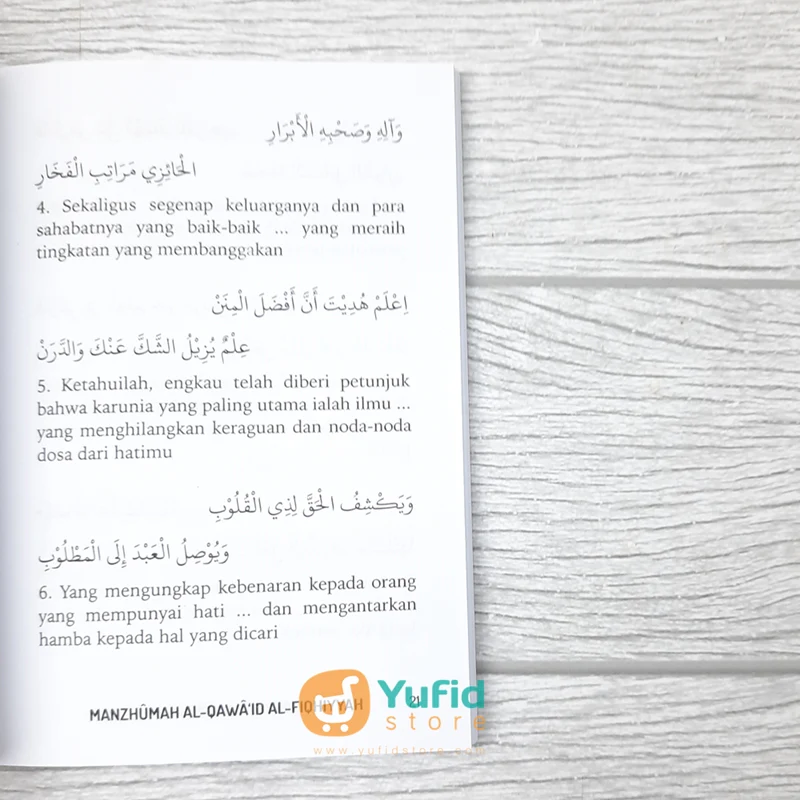 وَآلِهِ وَصَحْبِهِ الْأَبْرَارِ
الْحَائِزِي مَرَاتِبِ الْفَخَارِ
4. Sekaligus segenap keluarganya dan para
sahabatnya yang baik-baik ... yang meraih
tingkatan yang membanggakan
اِعْلَمْ هُدِيْتَ أَنَّ أَفْضَلَ الْمِنَنْ
عِلْمٌ يُزِيْلُ الشَّكَّ عَنْكَ وَالدَّرَنْ
5. Ketahuilah, engkau telah diberi petunjuk
bahwa karunia yang paling utama ialah ilmu ...
yang menghilangkan keraguan dan noda-noda
dosa dari hatimu
وَيَكْشِفُ الْحَقَّ لِذِي الْقُلُوْبِ
وَيُوْصِلُ الْعَبْدَ إِلَى الْمَطْلُوْبِ
6. Yang mengungkap kebenaran kepada orang
yang mempunyai hati ... dan mengantarkan
hamba kepada hal yang dicari
MANZHÛMAH AL-QAWÂ'ID AL-FIQHIYYAH 21
Yufid
store
www.yufidstore.com